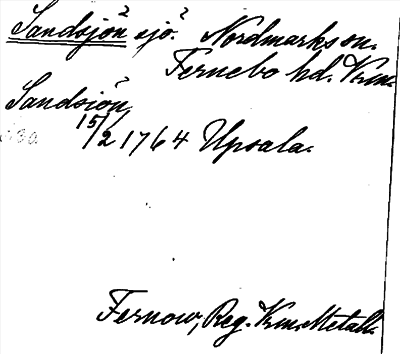 Sandsjön? sjö.? Nordmarks sn.
Fernebo hd. Vrm.
Sandsiön
15/2 1764 Upsala.
Fernow, Reg. Vrm. Metall.